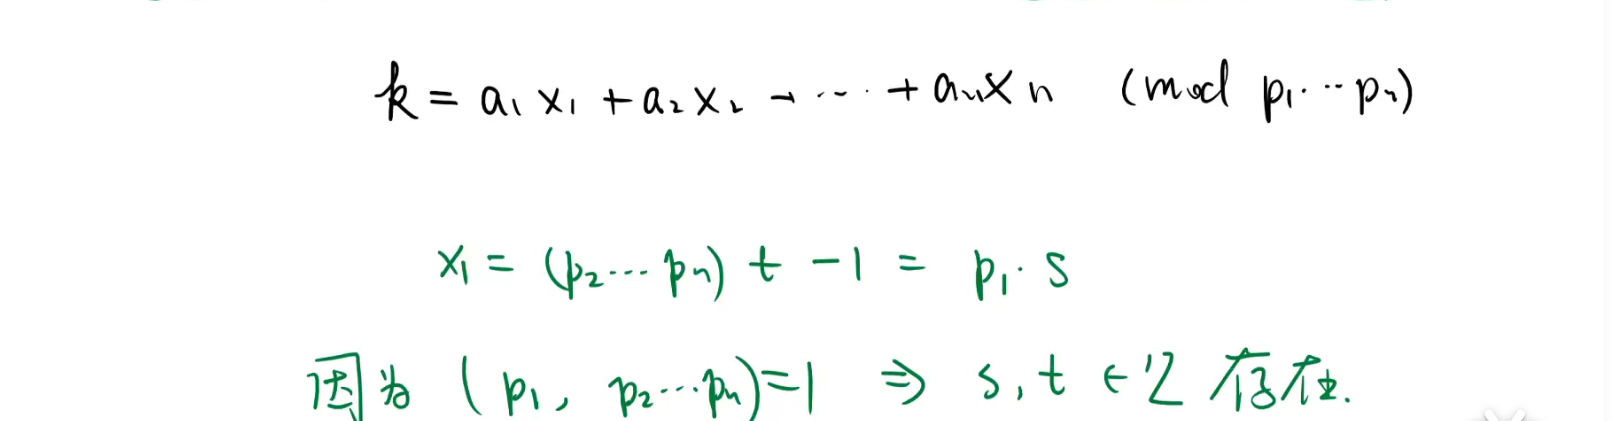 k = a₁ x₁ + a₂ x₂ + ⋯ + aₙ xₙ (mod p₁⋯pₙ)
x₁ = (p₂⋯pₙ) t − 1 = p₁·s
因为 (p₁, p₂⋯pₙ)=1 ⇒ s, t ∈ ℤ 存在.